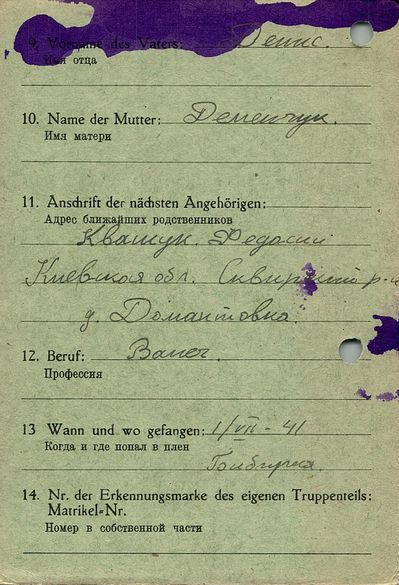 9. Vorname des Vaters: Денис.
Имя отца
10. Name der Mutter: Деменчук.
Имя матери
11. Anschrift der nächsten Angehörigen:
Адрес ближайших родственников
Квашук. Федосий
Киевская обл. Сквирский р-н
д. Домантовка
12. Beruf:
Профессия
13 Wann und wo gefangen: 1/VII - 41
Когда и где попал в плен
14. Nr. der Erkennungsmarke des eigenen Truppenteils:
Matrikel=Nr.
Номер в собственной части